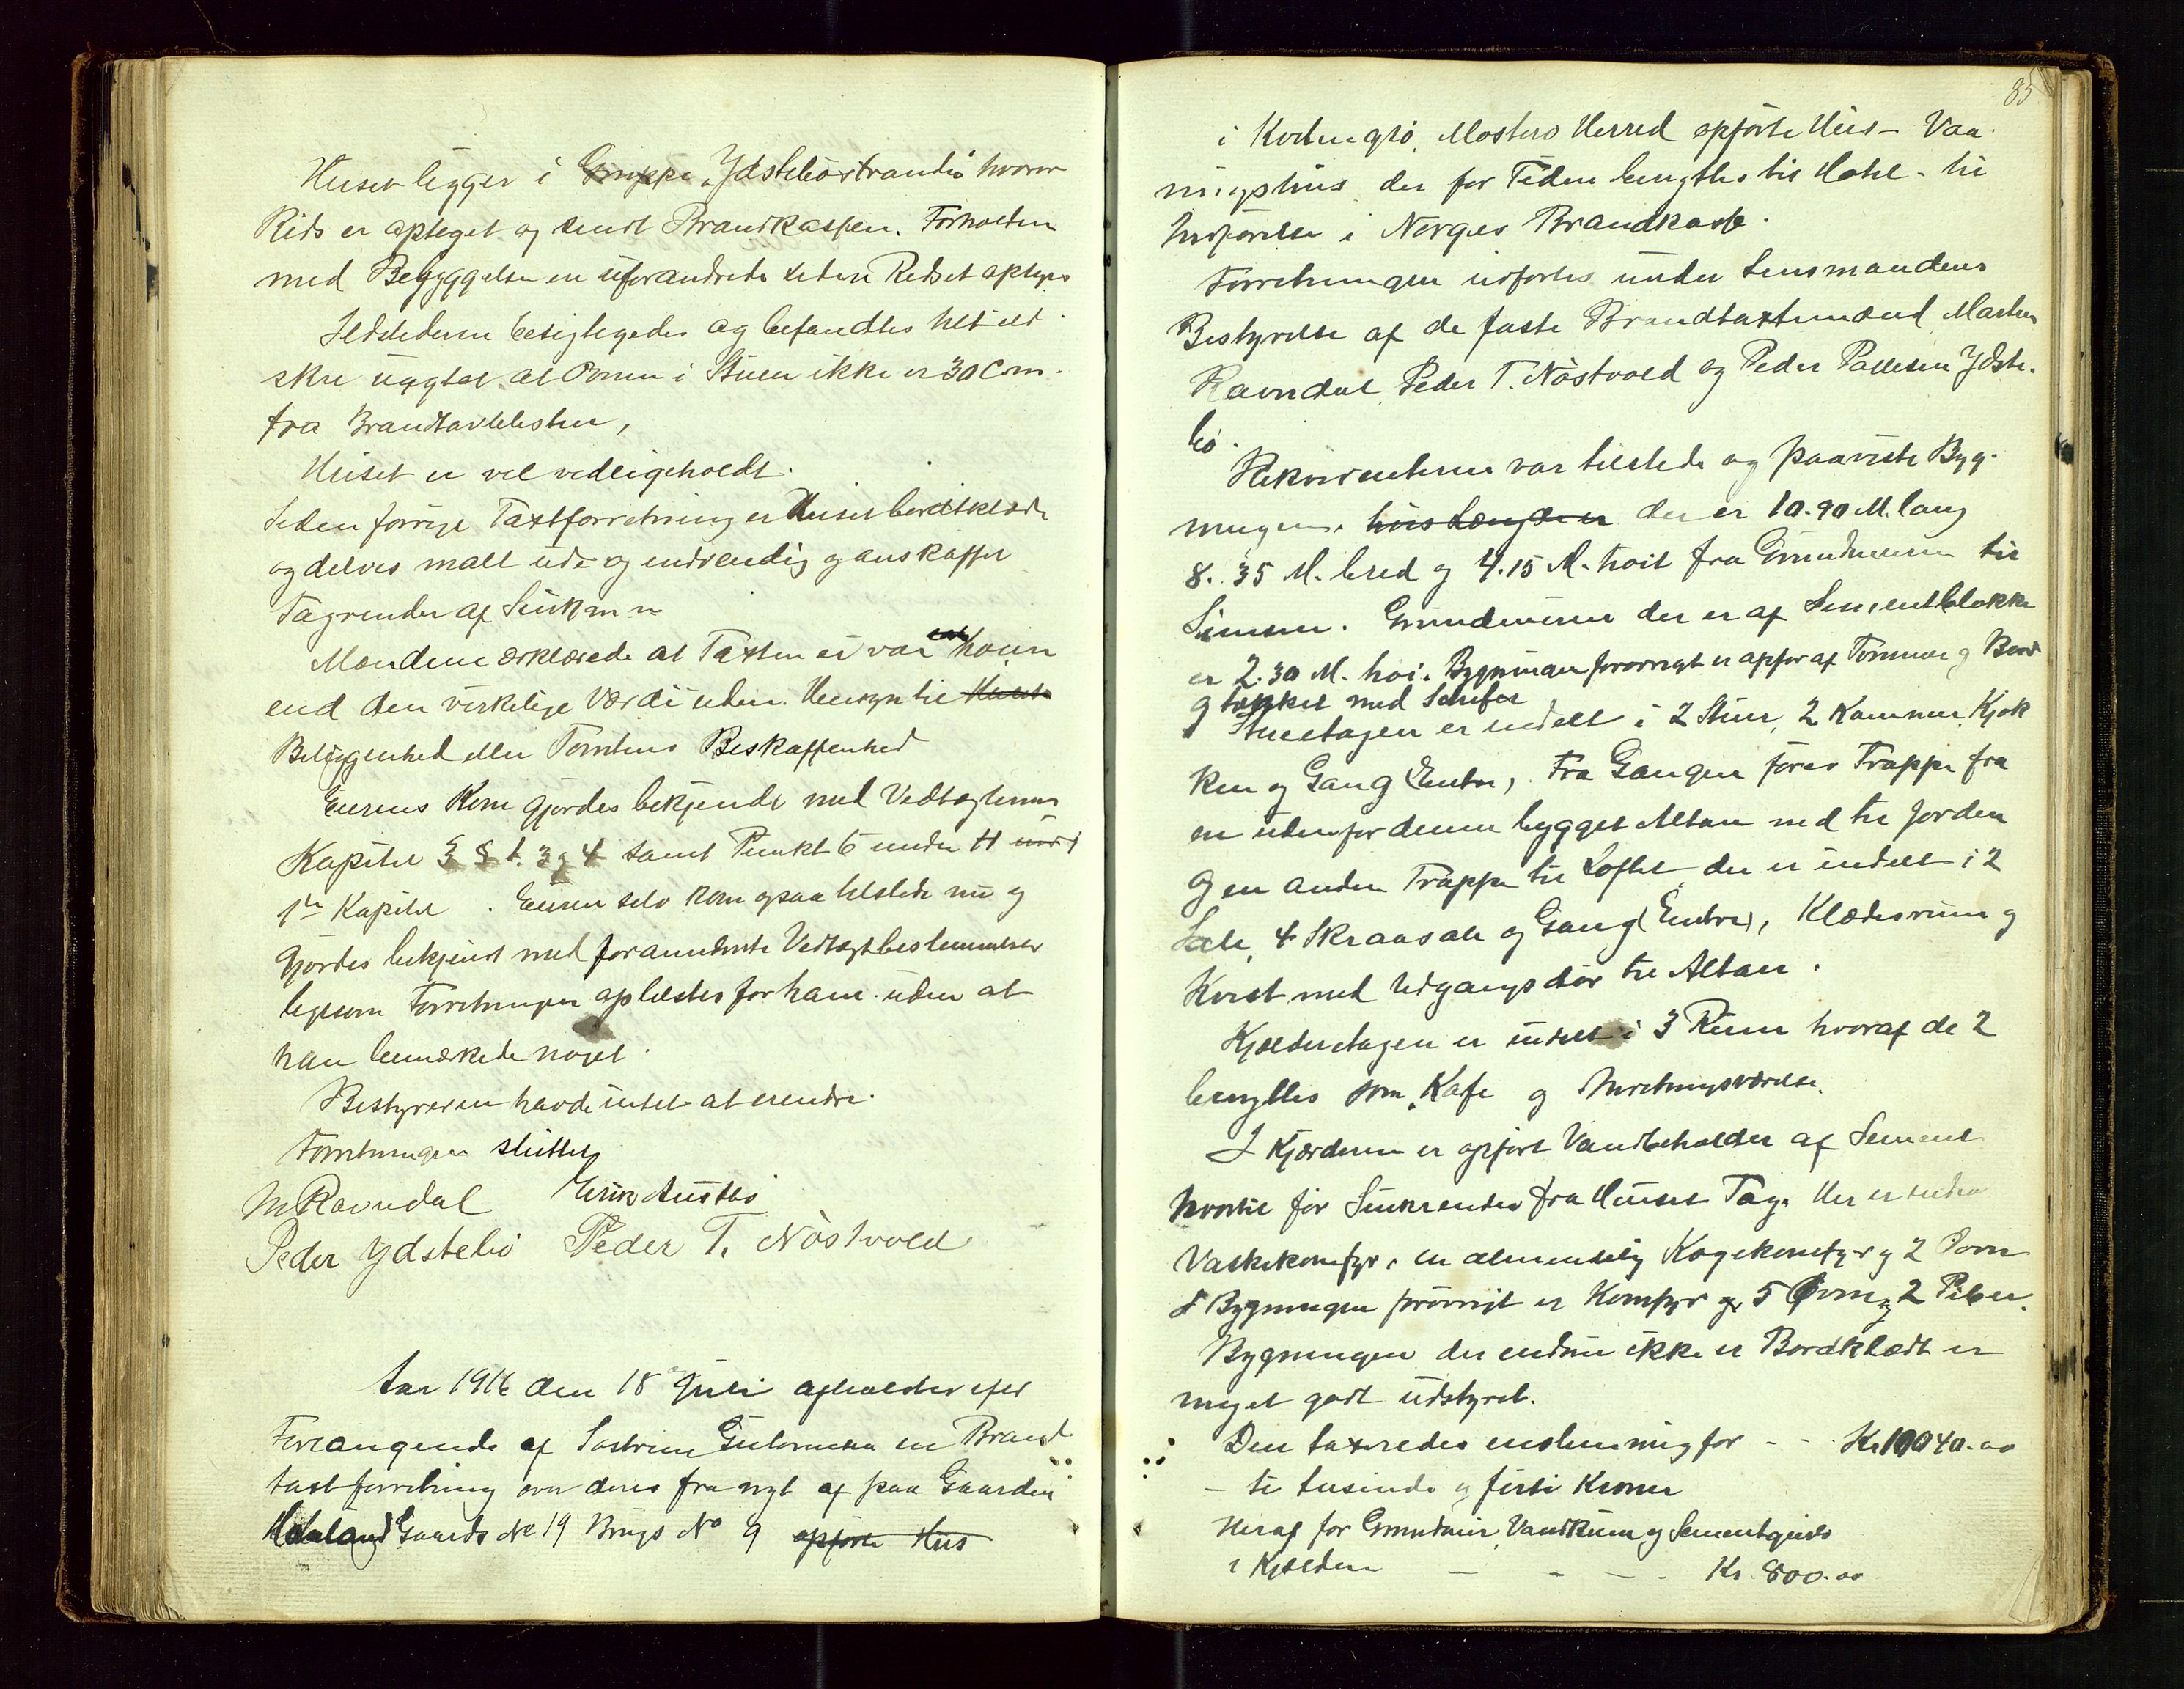 Huset ligger i Gruppe Ydstebøstrand hvorov
Rids er optaget og sendt Brandkassen. Forholdene
med Bebyggelsen er uforandrede siden Ridset optoges
Ildstederne besigtigedes og befandtes helt ild
skre undtat at Ovnen i Stuen ikke er 30 Cm.
fra Brandtavlelisten,
Huset er vel vedligeholdt.
Siden forrige Taxtforretning er Huset bordklædt
og delvis malt ude og indvendig og anskaffet
Tagrender af Sink m m
Mændene erklærede at Taxten ei var høiere
end den virkelige Værdi uden Hensyn til Husets
Beliggenhed eller Tomtens Beskaffenhed
Eierens Kone gjordes bekjendt med Vedtægternes
Kapitel 3 § 1. 3 og 4 samt Punkt 6 under H
1ste Kapitel. Eieren selv kom ogsaa tilstede nu og
gjordes bekjendt med forannævnte Vedtægtbestemmelser
ligesom Forretningen oplæstes for ham uden at
han bemærkede noget.
Bestyreren havde intet at erindre.
Forretningen sluttet,
M Ravndal Erik Austbø
Peder Ydstebø Peder T. Nöstvold
Aar 1916 den 18 Juli afholdtes efter
Forlangende af Søstrene en Brand
taxtforretning over deres fra nyt af paa Gaarden
Haland Gaards No 19 Brugs No 9 opførte Hus
85
i Kvitingsö, Mosterö Herred opførte Hus - Vaa-
ningshus der for Tiden benyttes til Hotel - til
Indførelse i Norges Brandkasse.
Forretningen udførtes under Lensmandens
Bestyrelse af de faste Brandtaxtmænd Marten
Ravndal, Peder T. Nöstvold og Peder Pallesen Ydste-
bø.
Rekvirenterne var tilstede og paaviste Byg-
ningen. hvis Længde er der er 10.90 M. lang
8.35 M. bred og 4.15 M. høit fra Grundmuren til
Simsen. Grundmuren der er af Sementblokke
er 2.30 M. høi. Bygningen forøvrigt er opført af Tømmer og Bord
og tækket med Skifer
Stueetagen er indelt i 2 Stuer, 2 Kammer, Kjøk
ken og Gang (Entre). Fra Gangen fører Trappe fra
en udenfor denne bygget Altan ned til Jorden
og en anden Trappe til Loftet der er indelt i 2
Sale, 4 Skraasale og Gang (Entre), Klædesrum og
Kvist med Udgangsdør til Altan.
Kjælderetagen er indelt i 3 Rum hvoraf de 2
benyttes som Kafe og Inretningsværelse.
I Kjælderen er opført Vandbeholder af Sement
hvortil før Sinkrender fra Husets Tag. Her er desuden
Vaskekomfyr, en almindelig Kogekomfyr og 2 Ovne
I Bygningen forøvrigt er Komfyr og 5 Ovne, 2 Piber.
Bygningen der endnu ikke er Bordklædt er
meget godt udstyret.
Den taxeredes enstemmig for - - Kr 10040.00
- ti tusinde og førti Kroner
Heraf for Grundmur, Vandkum og Sementgulv
i Kjælderen - - - Kr. 800.00